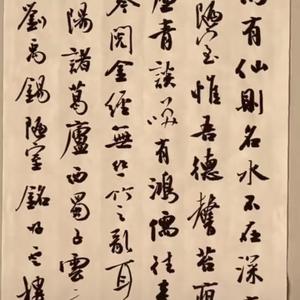 有仙則名水不在深
陋室惟吾德馨苔痕
簾青談笑有鴻儒往來
琴閱金經無絲竹之亂耳
陽諸葛廬西蜀子雲
劉禹錫陋室銘